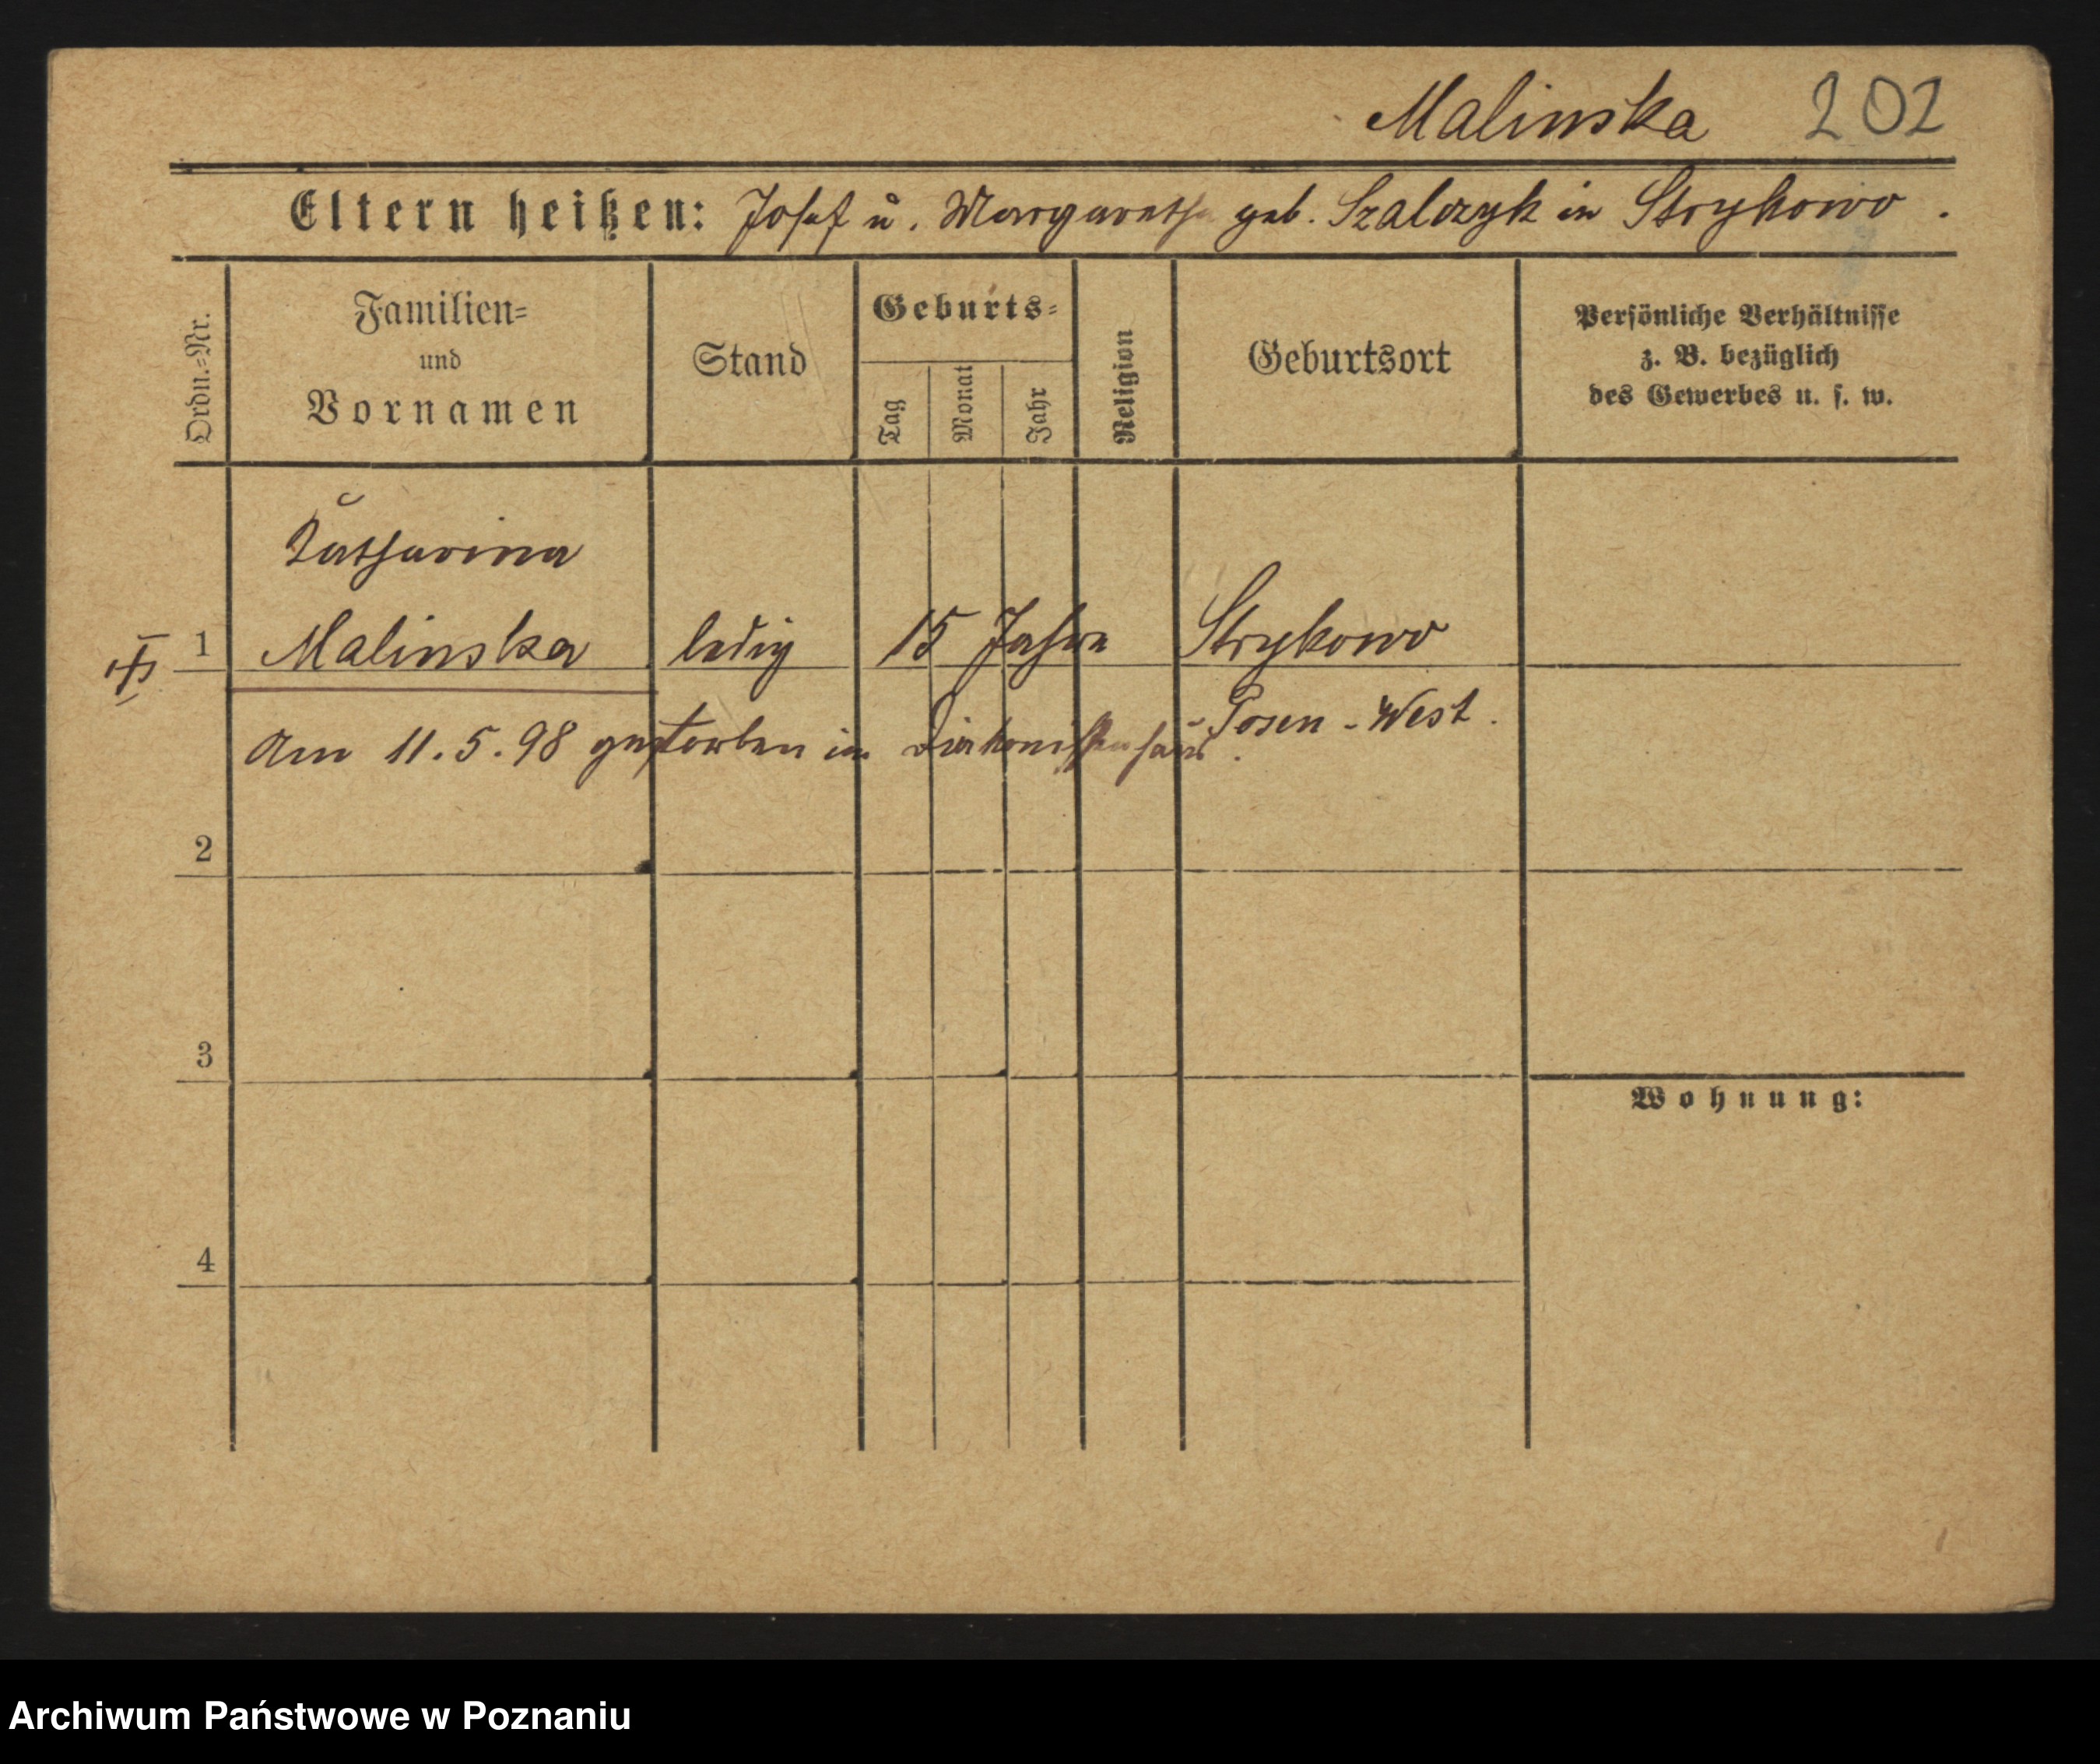 Malinska 202
Eltern heißen: Josef u. Margaretha geb. Szalczyk in Strykowo.
Ordn.=Nr.
Familien=
und
Vornamen
Stand
Geburts=
Tag
Monat
Jahr
Religion
Geburtsort
Persönliche Verhältnisse
z. B. bezüglich
des Gewerbes u. s. w.
Katharina
1 Malinska ledig 15 Jahre Strykowo
Posen-West.
Am 11.5.98 gestorben im Diakonissenhaus.
2
3
Wohnung:
4
Archiwum Państwowe w Poznaniu